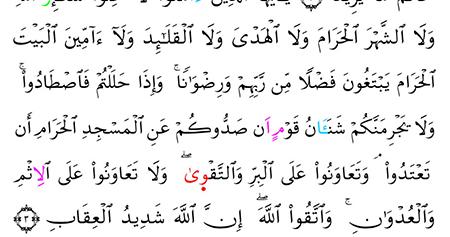 وَلَا اَ۬لشَّهْرَ اَ۬لْحَرَامَ وَلَا اَ۬لْهَدْىَ وَلَا اَ۬لْقَلَٰٓئِدَ وَلَآ ءَآمِّينَ اَ۬لْبَيْتَ
اَ۬لْحَرَامَ يَبْتَغُونَ فَضْلًا مِّن رَّبِّهِمْ وَرِضْوَٰنًا ۖ وَإِذَا حَلَلْتُمْ فَاصْطَادُوا۟ ۖ
وَلَا يَجْرِمَنَّكُمْ شَنَـَٔانُ قَوْمٍ اَن صَدُّوكُمْ عَنِ اِ۬لْمَسْجِدِ اِ۬لْحَرَامِ أَن
تَعْتَدُوا۟ ۘ وَتَعَاوَنُوا۟ عَلَى اَ۬لْبِرِّ وَالتَّقْو۪ىٰ ۖ وَلَا تَعَاوَنُوا۟ عَلَى اَ۬لِاثْمِ
وَالْعُدْوَٰنِ ۖ وَاتَّقُوا۟ اُ۬للَّهَ ۖ إِنَّ اَ۬للَّهَ شَدِيدُ اُ۬لْعِقَابِ ٣